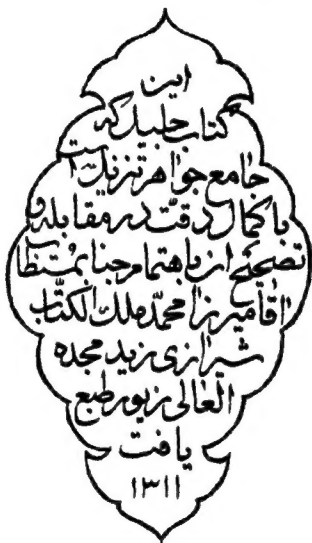 این
کتاب جلیل که
جامع جواهر تنزیل است
با کمال دقت در مقابله و
تصحیح از باهتمام جناب مستطاب
آقا میرزا محمد ملک الکتاب
شیرازی زید مجده
العالی زیور طبع
یافت
۱۳۱۱